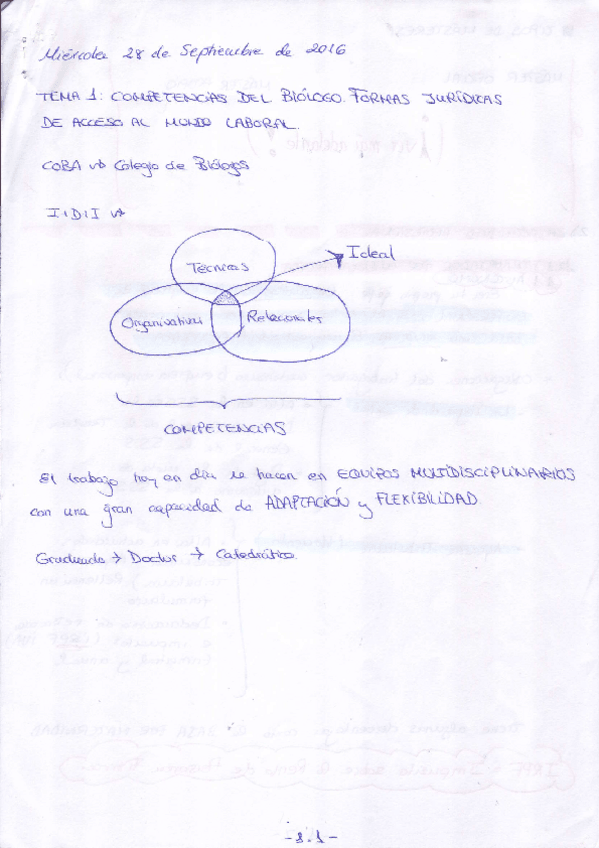 Miércoles 28 de Septiembre de 2016
TEMA 1: COMPETENCIAS DEL BIÓLOGO. FORMAS JURÍDICAS
DE ACCESO AL MUNDO LABORAL.
COBA → Colegio de Biólogos
I+D+I →
Técnicas
Ideal
Organisativas
Relacionales
COMPETENCIAS
El trabajo hoy en día se hacen en EQUIPOS MULTIDISCIPLINARIOS
con una gran capacidad de ADAPTACIÓN y FLEXIBILIDAD.
Graduado → Doctor → Catedrático.